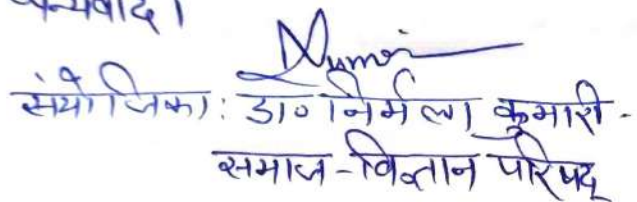 धन्यवाद।
संयोजिका: डा० निर्मला कुमारी -
समाज-विज्ञान परिषद्